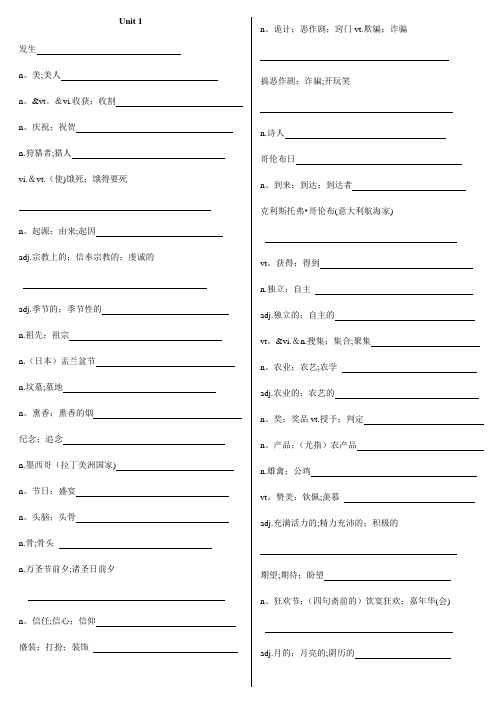 Unit 1
发生
n。美;美人
n。&vt。&vi.收获；收割
n。庆祝；祝贺
n.狩猎者;猎人
vi.&vt.（使)饿死；饿得要死
n。起源；由来;起因
adj.宗教上的；信奉宗教的；虔诚的
adj.季节的；季节性的
n.祖先；祖宗
n.（日本）盂兰盆节
n.坟墓;墓地
n。熏香；熏香的烟
纪念；追念
n.墨西哥（拉丁美洲国家)
n。节日；盛宴
n。头脑；头骨
n.骨;骨头
n.万圣节前夕;诸圣日前夕
n。信任;信心；信仰
盛装；打扮；装饰
n。诡计；恶作剧；窍门 vt.欺骗；诈骗
搞恶作剧；诈骗;开玩笑
n.诗人
哥伦布日
n。到来；到达；到达者
克利斯托弗•哥伦布(意大利航海家)
vt。获得；得到
n.独立；自主
adj.独立的；自主的
vt。&vi.&n.搜集；集合;聚集
n。农业；农艺;农学
adj.农业的；农艺的
n。奖；奖品 vt.授予；判定
n。产品；（尤指）农产品
n.雄禽；公鸡
vt。赞美；钦佩;羡慕
adj.充满活力的;精力充沛的；积极的
期望;期待；盼望
n。狂欢节；（四旬斋前的）饮宴狂欢；嘉年华(会)
adj.月的；月亮的;阴历的